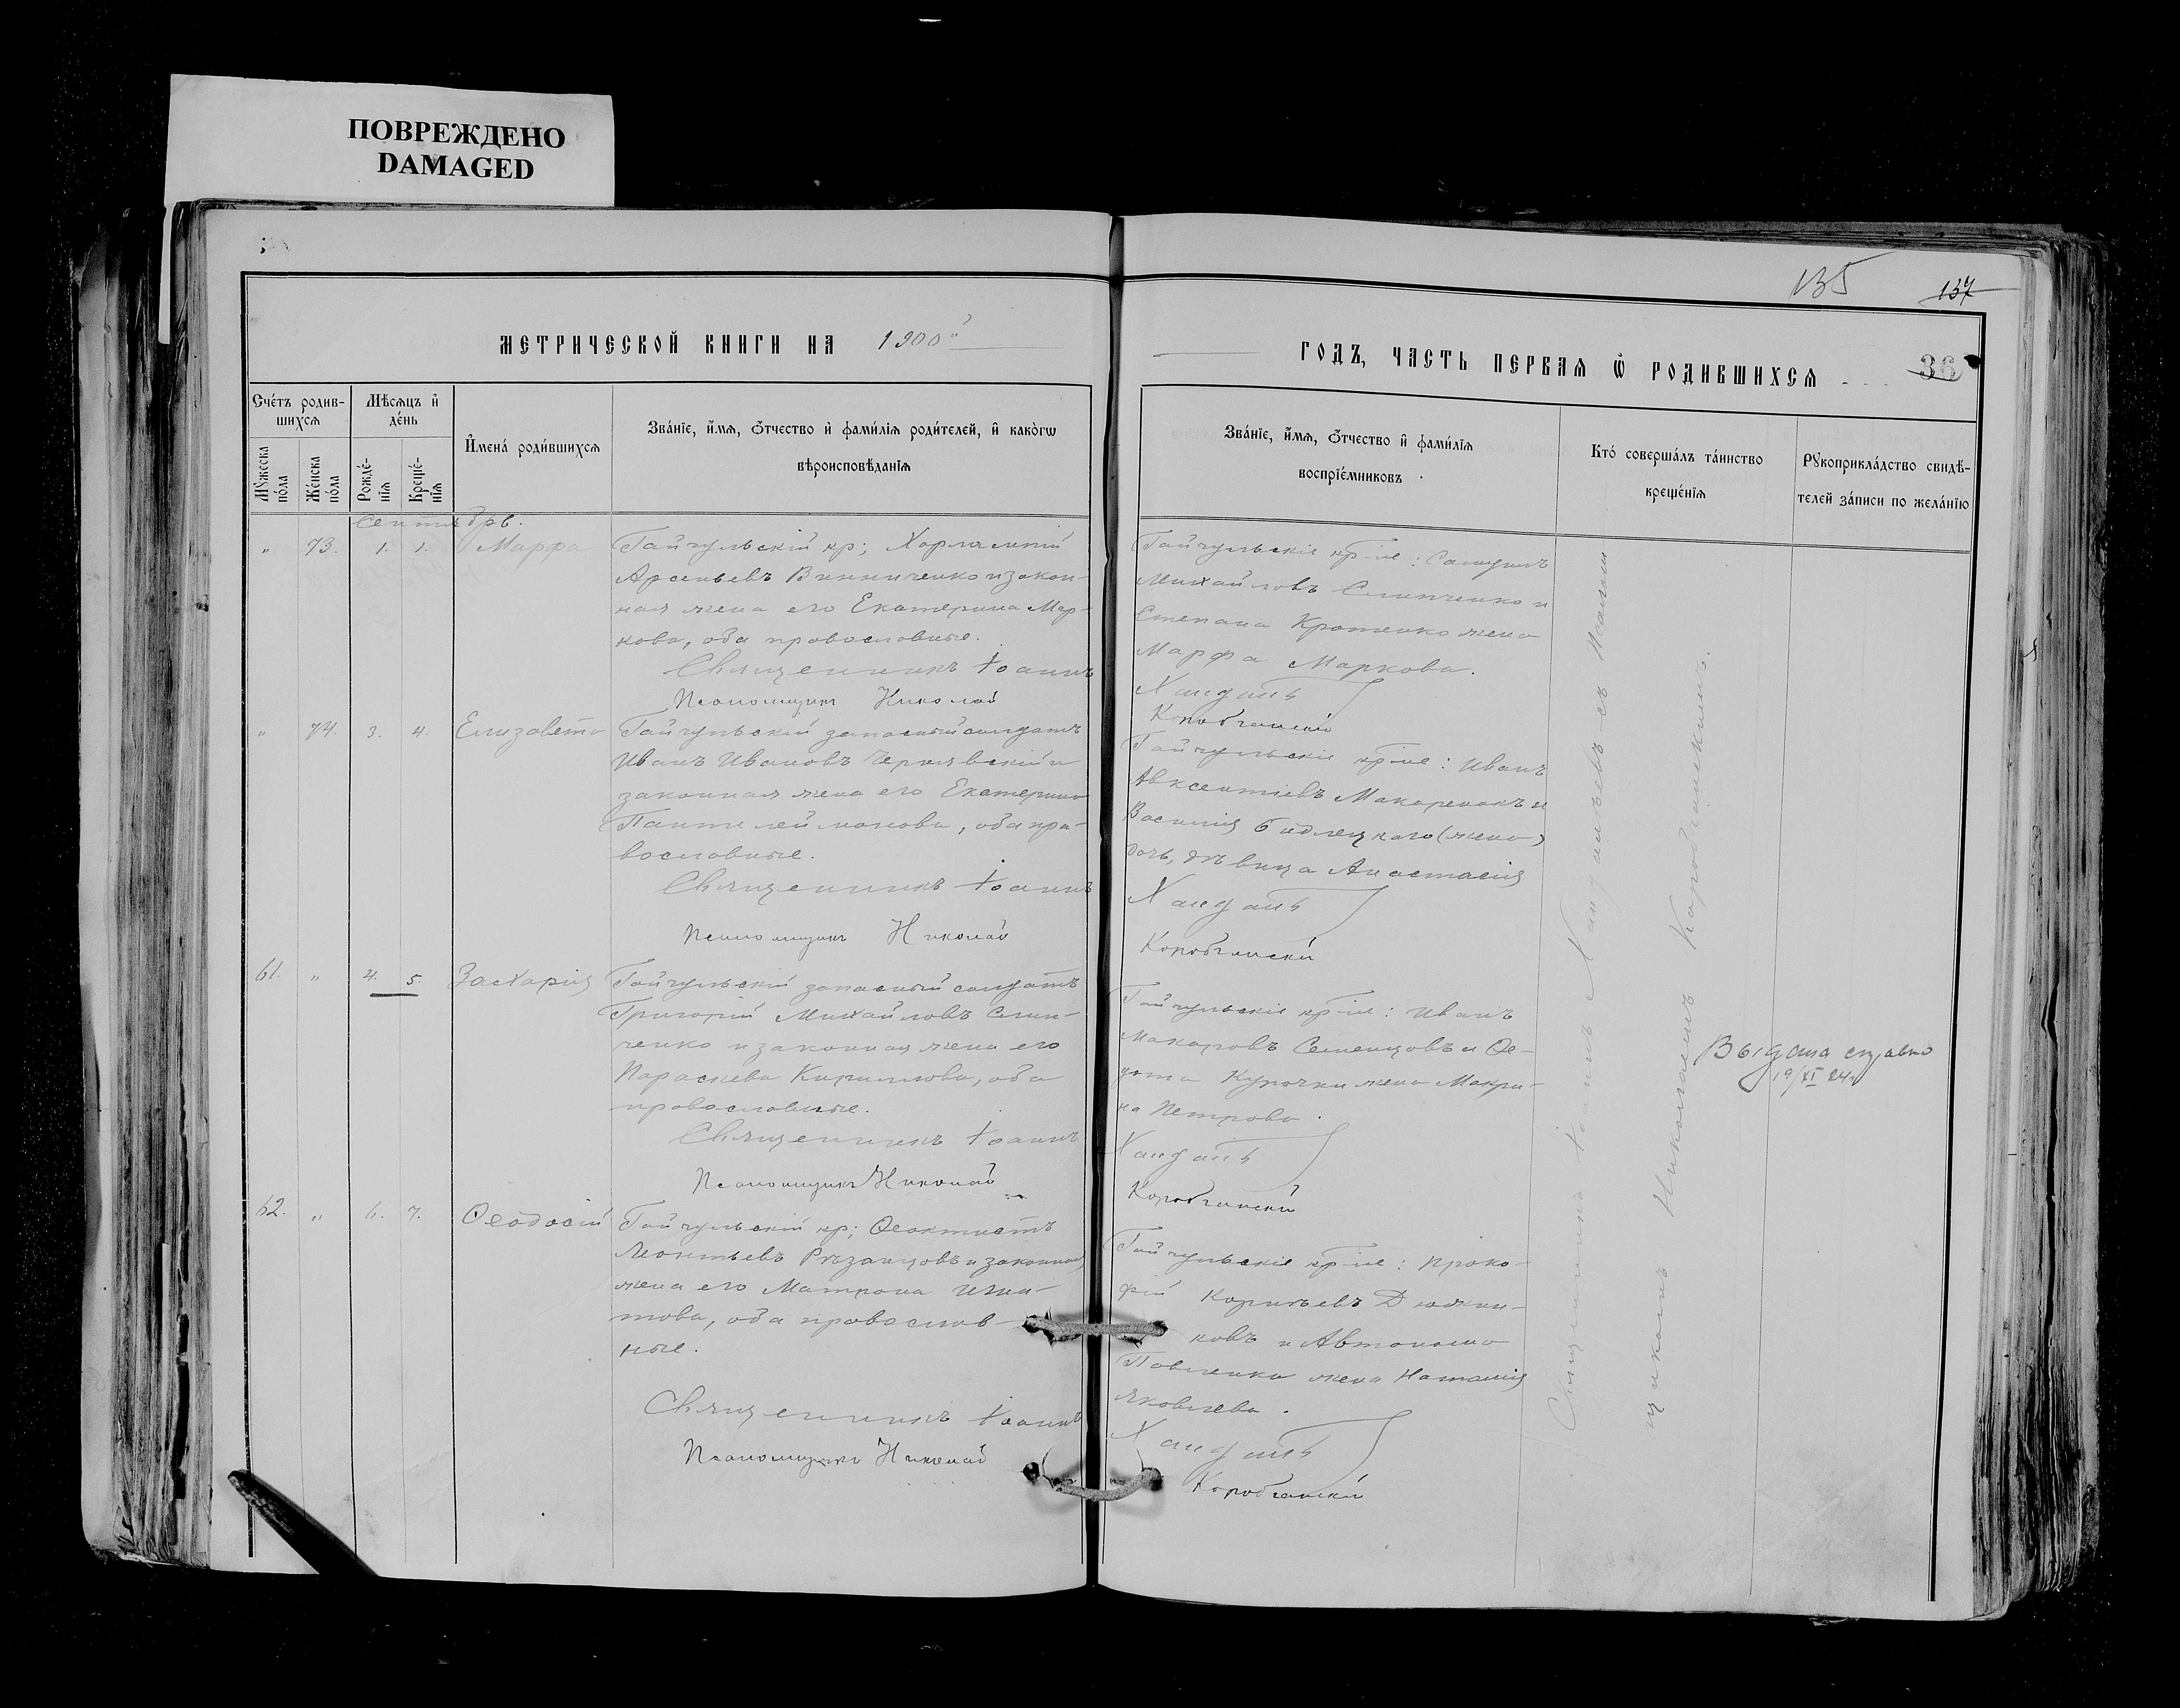 ПОВРЕЖДЕНО
DAMAGED
135
137
МЕТРИЧЕСКОЙ КНИГИ НА 1900й
ГОДЪ, ЧАСТЬ ПЕРВАЯ Ѿ РОДИВШИХСЯ
36
Счétъ родившихсѧ
Мѣсѧцъ и҆ дéнь
Мꙋжеска пóла
Жéнска пóла
Рождéнїѧ
Крещéнїѧ
И҆менá роди́вшихсѧ
Звáнїе, и҆́мѧ, ѻ҆́тчество и҆ фами́лїѧ роди́телей, и҆ какóгѡ
вѣроисповѣ́данїѧ
Звáнїе, и҆́мѧ, ѻ҆́тчество и҆ фами́лїѧ
воспрїéмниковъ
Ктó совершáлъ тáинство
крещéнїѧ
Рꙋкоприклáдство свидѣ́-
телей зáписи по желáнїю
Сентябрь.
" 73. 1. 1. Марфа
Гайчульскій кр; Харлампій
Арсеньевъ Винниченко и закон-
ная жена его Екатерина Мар-
кова, оба православные.
Священникъ Іоаннъ
Псаломщикъ Николай
Гайчульскіе кр-не: Самуилъ
Михайловъ Слипченко и
Степана Кротенко жена
Марфа Маркова.
Хандалѣевъ
Коробчанскій
" 74. 3. 4. Елизавета
Гайчульскій запасный солдатъ
Иванъ Ивановъ Чернявскій и
законная жена его Екатерина
Пантелеймонова, оба пра-
вославные.
Священникъ Іоаннъ
Псаломщикъ Николай
Гайчульскіе кр-не: Иванъ
Авксентіевъ Макаренокъ и
Василія (жена)
дочь, дѣвица Анастасія
Коробчанскій
61. " 4. 5. Захарія
Гайчульскій запасный солдатъ
Григорій Михайловъ Слип-
ченко и законная жена его
Параскева Кириллова, оба
православные.
Священникъ Іоаннъ
Псаломщикъ Николай
Гайчульскіе кр-не: Иванъ
Макаровъ Семенцовъ и Ѳе-
дота Курочки жена Макри-
на Петрова.
Коробчанскій
Выдана справка
19/XI 24
62. " 6. 7. Ѳеодосій
Гайчульскій кр; Ѳеоктистъ
Леонтьевъ Рѣзанцовъ и законная
жена его Матрона Игна-
това, оба православ-
ные.
Священникъ Іоаннъ
Псаломщикъ Николай
Гайчульскіе кр-не: Проко-
фій Корнѣевъ Дюжи-
ковъ и Автонома
Павленка жена Наталія
Яковлева.
Коробчанскій
Священникъ Іоаннъ съ Псалом
щикомъ Николаемъ Коробчанскимъ.